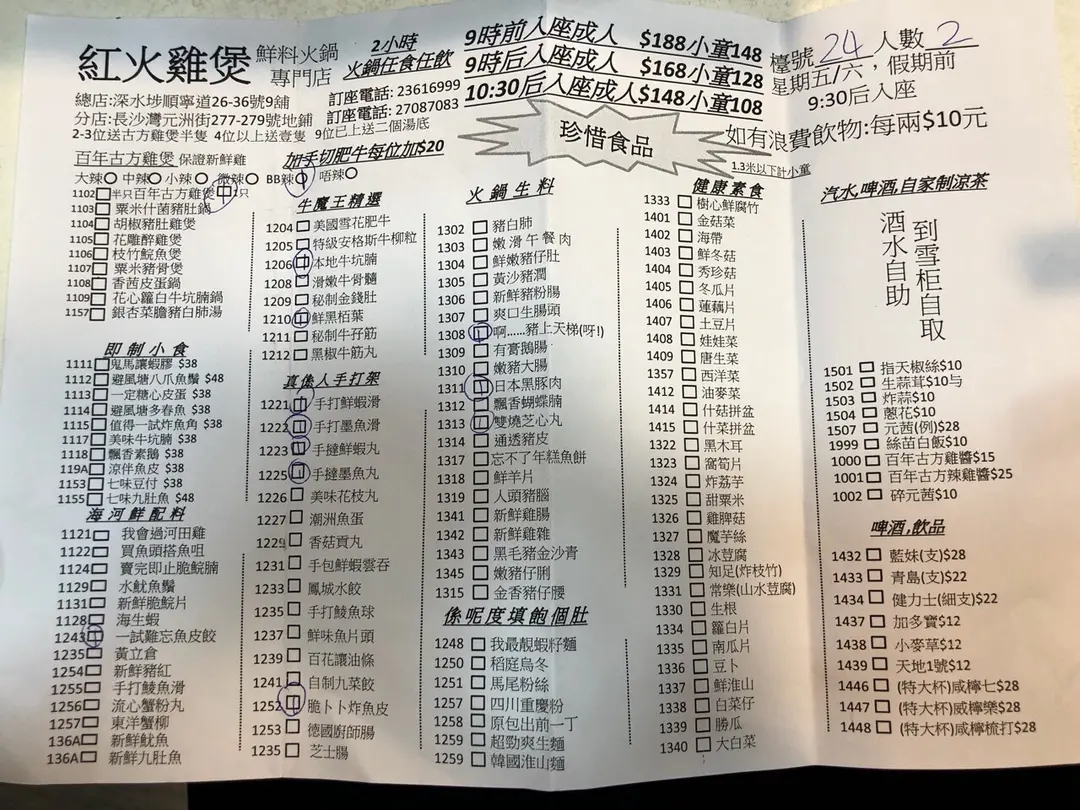 紅火雞煲 鮮料火鍋專門店
2小時
火鍋任食任飲
9時前入座成人 $188小童148
9時后入座成人 $168小童128
10:30后入座成人$148小童108
檯號 24 人數 2
星期五/六，假期前
9:30后入座
總店:深水埗順寧道26-36號9舖
分店:長沙灣元洲街277-279號地鋪
2-3位送古方雞煲半隻 4位以上送壹隻 9位已上送二個湯底
訂座電話: 23616999
訂座電話: 27087083
珍惜食品
如有浪費飲物:每兩$10元
1.3米以下計小童
百年古方雞煲 保證新鮮雞
加手切肥牛每位加$20
大辣 中辣 小辣 微辣 BB辣 唔辣
1102 半只百年古方雞煲 1只
1103 粟米什菌豬肚鍋
1104 胡椒豬肚雞煲
1105 花雕醉雞煲
1106 枝竹鯇魚煲
1107 粟米豬骨煲
1108 香茜皮蛋鍋
1109 花心籮白牛坑腩鍋
1157 銀杏菜膽豬白肺湯
即制小食
1111 鬼馬讓蝦膠 $38
1112 避風塘八爪魚鬚 $48
1113 一定糖心皮蛋 $38
1114 避風塘多春魚 $38
1115 值得一試炸魚角 $38
1117 美味牛坑腩 $38
1118 飄香素鵝 $38
119A 涼伴魚皮 $38
1153 七味豆付 $38
1155 七味九肚魚 $48
海河鮮配料
1121 我會過河田雞
1122 買魚頭搭魚咀
1124 賣完即止脆鯇腩
1129 水魷魚鬚
1131 新鮮脆鯇片
1128 海生蝦
1243 一試難忘魚皮餃
1235 黃立倉
1254 新鮮豬紅
1255 手打鯪魚滑
1256 流心蟹粉丸
1257 東洋蟹柳
136A 新鮮魷魚
136A 新鮮九肚魚
牛魔王精選
1204 美國雪花肥牛
1205 特級安格斯牛柳粒
1206 本地牛坑腩
1208 滑嫩牛骨髓
1209 秘制金錢肚
1210 鮮黑栢葉
1211 秘制牛孖筋
1212 黑椒牛筋丸
真係人手打架
1221 手打鮮蝦滑
1222 手打墨魚滑
1223 手撻鮮蝦丸
1225 手撻墨魚丸
1226 美味花枝丸
1227 潮洲魚蛋
1229 香菇貢丸
1231 手包鮮蝦雲吞
1233 鳳城水餃
1235 手打鯪魚球
1237 鮮味魚片頭
1239 百花讓油條
1241 自制九菜餃
1252 脆卜卜炸魚皮
1253 德國廚師腸
1235 芝士腸
火鍋生料
1302 豬白肺
1303 嫩滑午餐肉
1304 鮮嫩豬仔肚
1305 黃沙豬潤
1306 新鮮豬粉腸
1307 爽口生腸頭
1308 啊......豬上天梯(呀!)
1309 有膏鵝腸
1310 嫩豬大腸
1311 日本黑豚肉
1312 飄香蝴蝶腩
1313 雙燒芝心丸
1314 通透豬皮
1317 忘不了年糕魚餅
1318 鮮羊片
1319 人頭豬腦
1341 新鮮雞腸
1342 新鮮雞雜
1343 黑毛豬金沙青
1345 嫩豬仔脷
1315 金香豬仔腰
係呢度填飽個肚
1248 我最靚蝦籽麵
1250 稻庭烏冬
1251 馬尾粉絲
1257 四川重慶粉
1258 原包出前一丁
1259 超勁爽生麵
1259 韓國淮山麵
健康素食
1333 樹心鮮腐竹
1401 金菇菜
1402 海帶
1403 鮮冬菇
1404 秀珍菇
1405 冬瓜片
1406 蓮藕片
1407 土豆片
1408 娃娃菜
1409 唐生菜
1357 西洋菜
1412 油麥菜
1414 什菇拼盆
1415 什菜拼盆
1322 黑木耳
1323 窩筍片
1324 炸荔芋
1325 甜粟米
1326 雞脾菇
1327 魔芋絲
1328 冰荳腐
1329 知足(炸枝竹)
1331 常樂(山水荳腐)
1330 生根
1334 籮白片
1335 南瓜片
1336 豆卜
1337 鮮淮山
1338 白菜仔
1339 勝瓜
1340 大白菜
汽水,啤酒,自家制涼茶
到雪柜自取
酒水自助
1501 指天椒絲$10
1502 生蒜茸$10与
1503 炸蒜$10
1504 蔥花$10
1507 元茜(例)$28
1999 絲苗白飯$10
1000 百年古方雞醬$15
1001 百年古方辣雞醬$25
1002 碎元茜$10
啤酒,飲品
1432 藍妹(支)$28
1433 青島(支)$22
1434 健力士(細支)$22
1437 加多寶$12
1438 小麥草$12
1439 天地1號$12
1446 (特大杯)咸檸七$28
1447 (特大杯)咸檸樂$28
1448 (特大杯)咸檸梳打$28